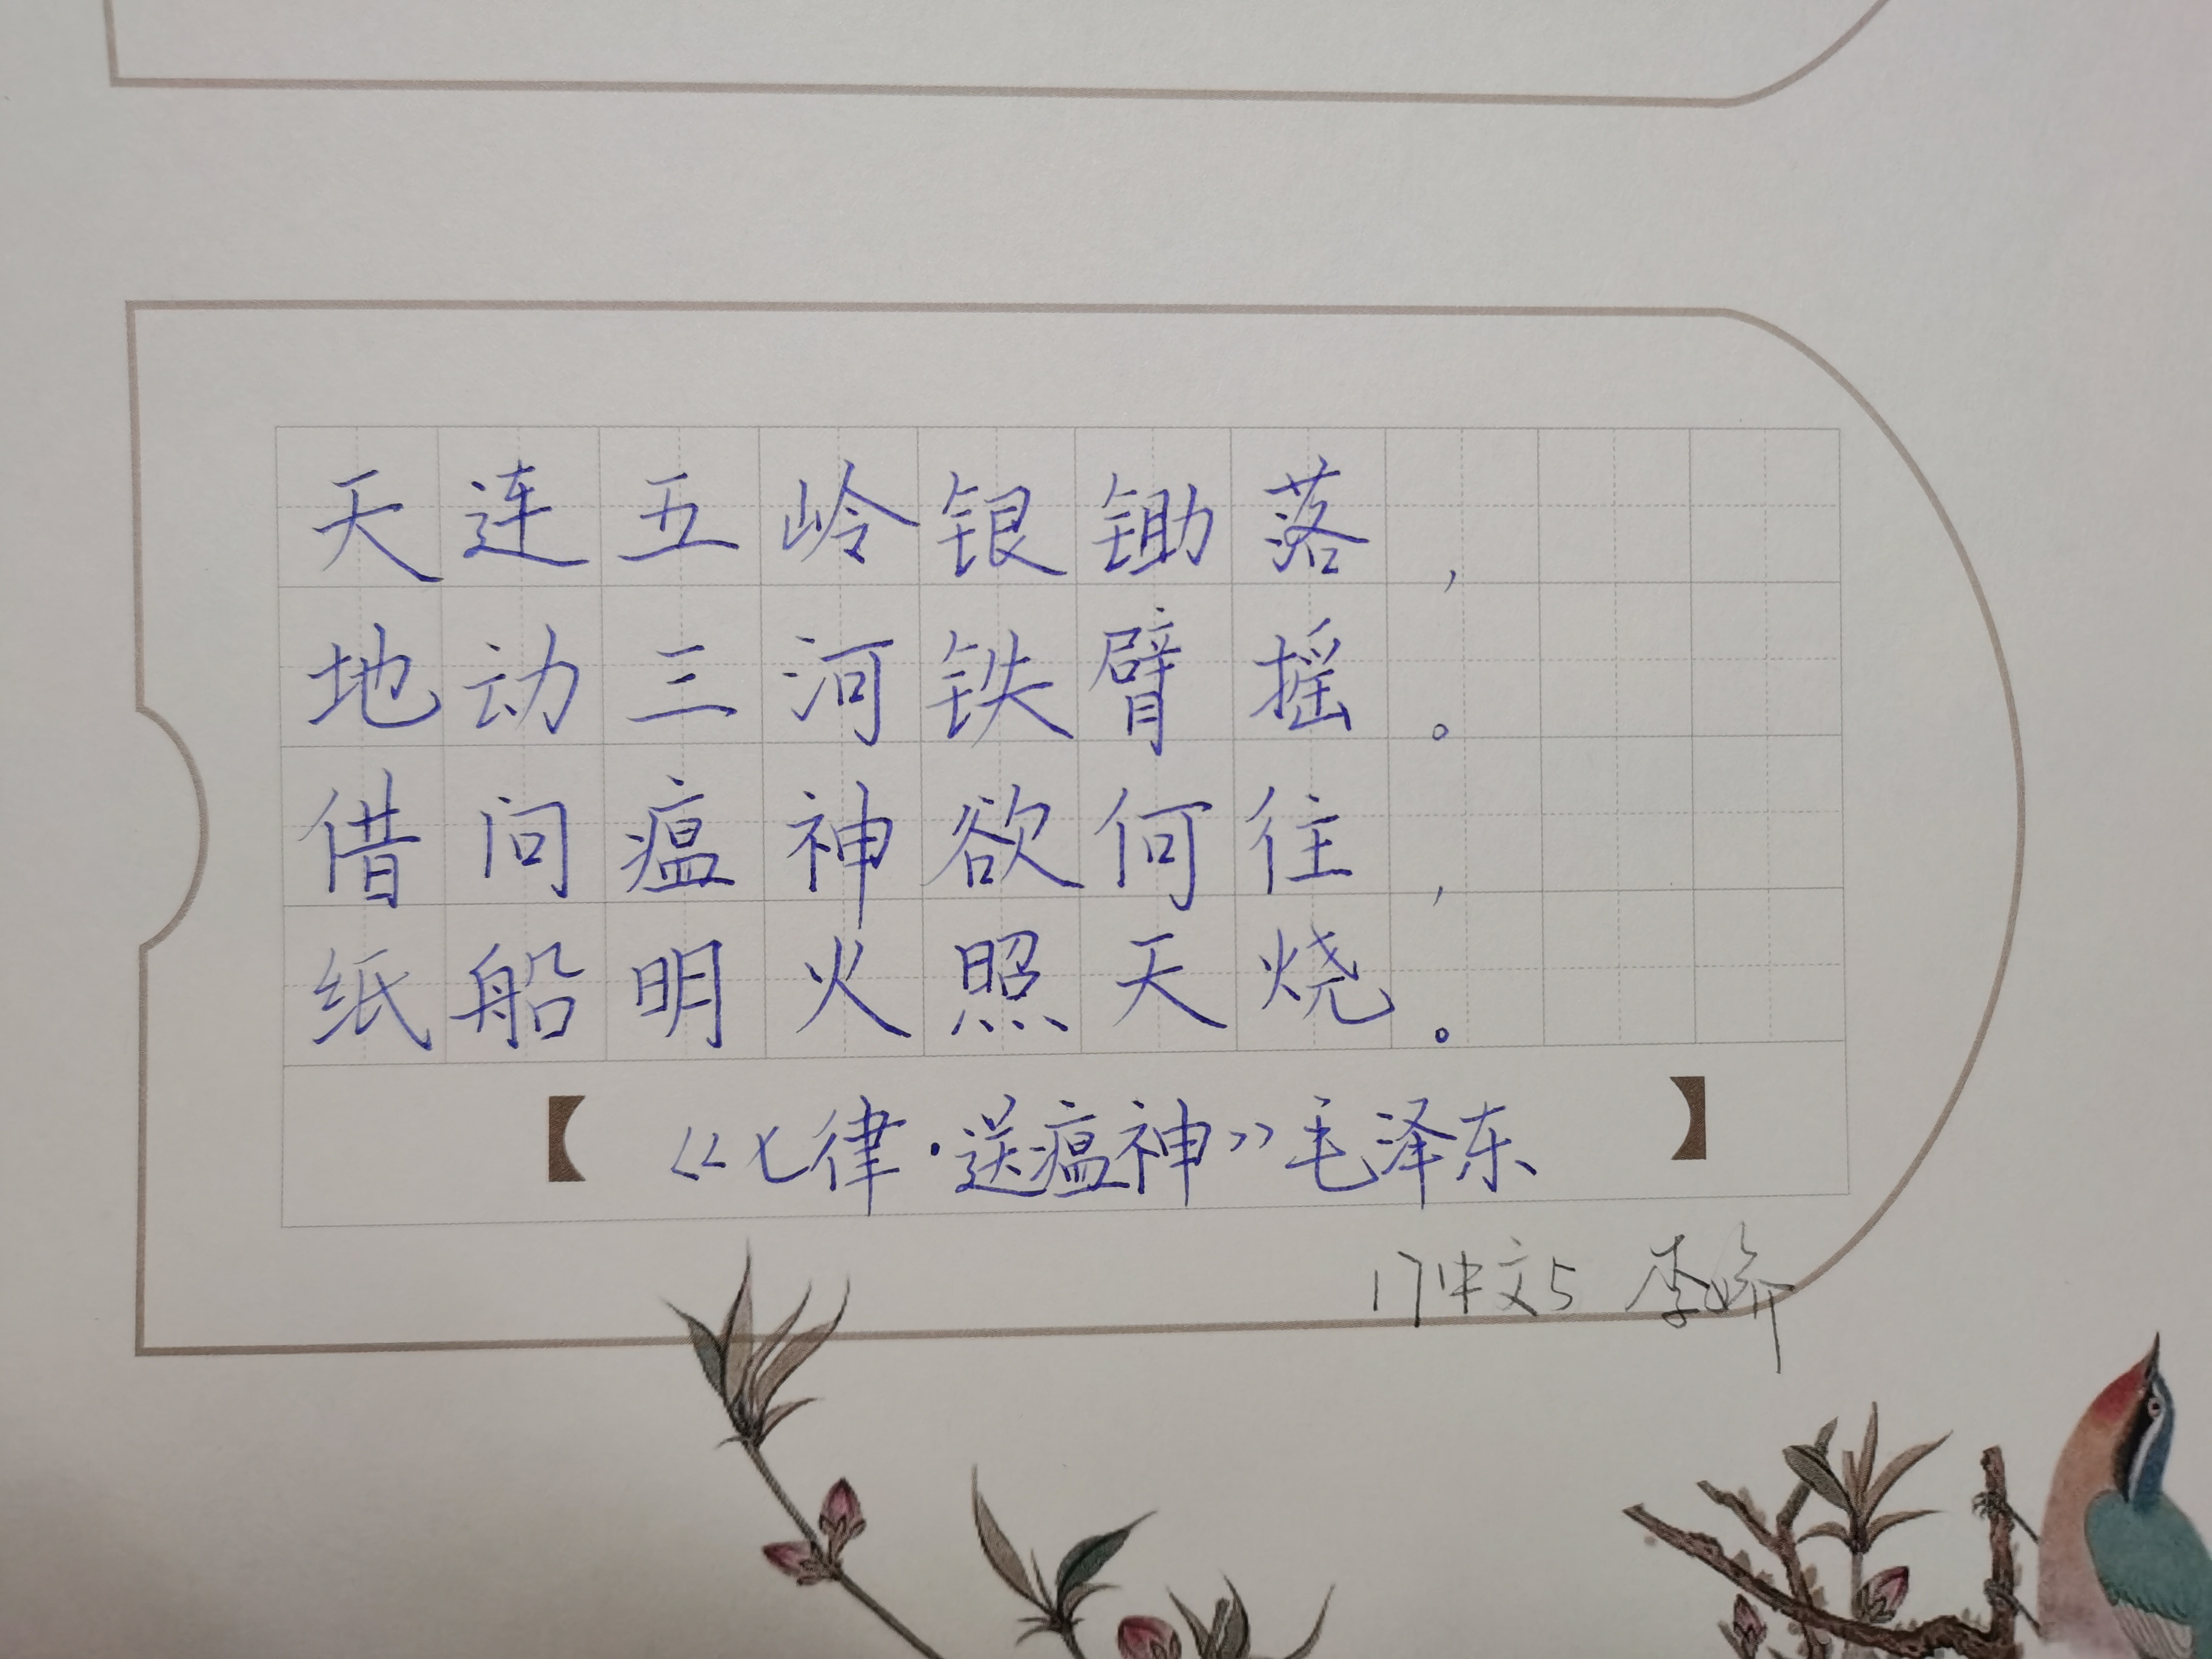 天连五岭银锄落，
地动三河铁臂摇。
借问瘟神欲何往，
纸船明火照天烧。
【《七律·送瘟神》毛泽东】
17中文5 李娇